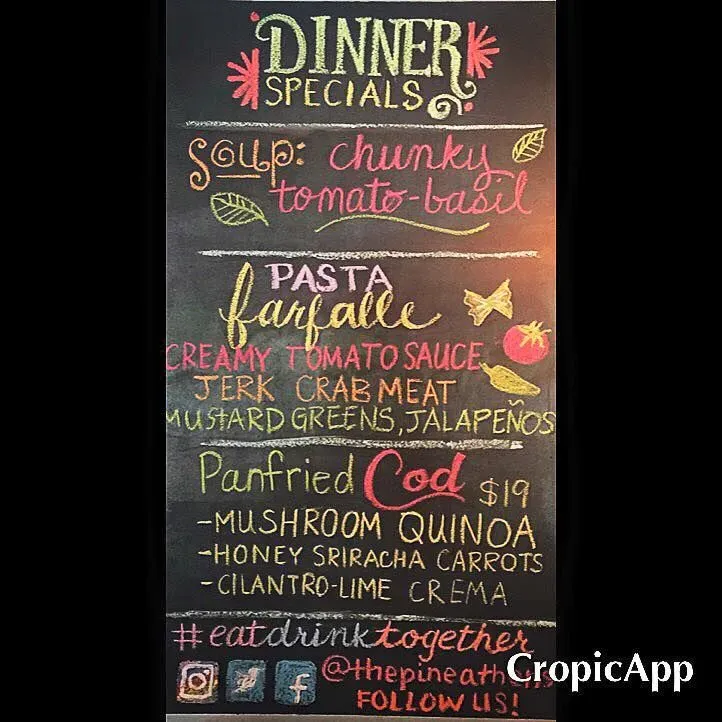 DINNER
SPECIALS
Soup: chunky
tomato-basil
PASTA
farfalle
CREAMY TOMATO SAUCE
JERK CRAB MEAT
MUSTARD GREENS, JALAPEÑOS
Panfried Cod $19
-MUSHROOM QUINOA
-HONEY SRIRACHA CARROTS
-CILANTRO-LIME CREMA
#eatdrinktogether
CropicApp
FOLLOW US!